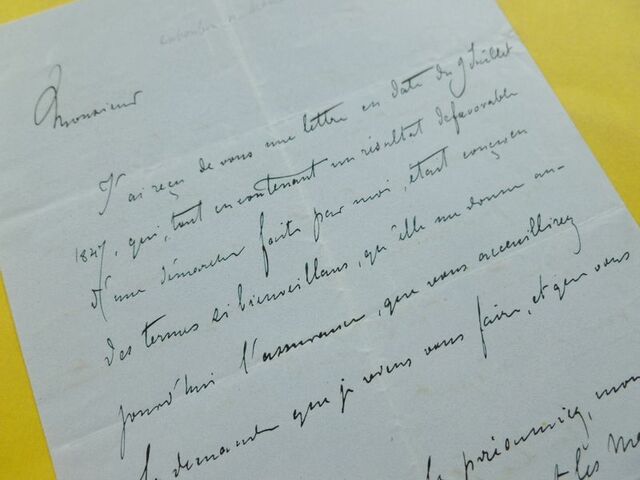 Monsieur
J'ai reçu de vous une lettre en date du 9 Juillet
1847, qui, tout en contenant un résultat défavorable
d'une démarche faite par moi, était conçue en
des termes si bienveillans, qu'elle me donne au-
jourd'hui l'assurance, que vous accueillirez
la demande que je viens vous faire, et que vous